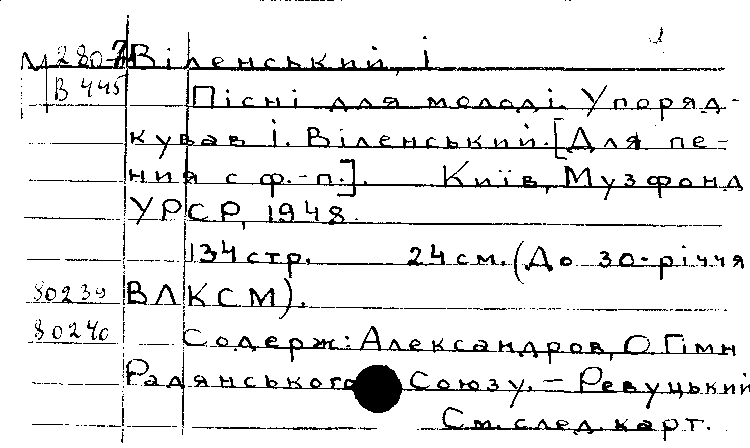 М 280-7 Віленський, І
В 445 Пісні для молоді. Упоряд-
кував І. Віленський. [Для пе-
ния с ф.-п.]. Київ, Музфонд
УРСР, 1948.
134 стр. 24 см. (До 30-річчя
80239 ВЛКСМ).
80240 Содерж: Александров, О. Гімн
Радянського Союзу. – Ревуцький
См. след. карт.